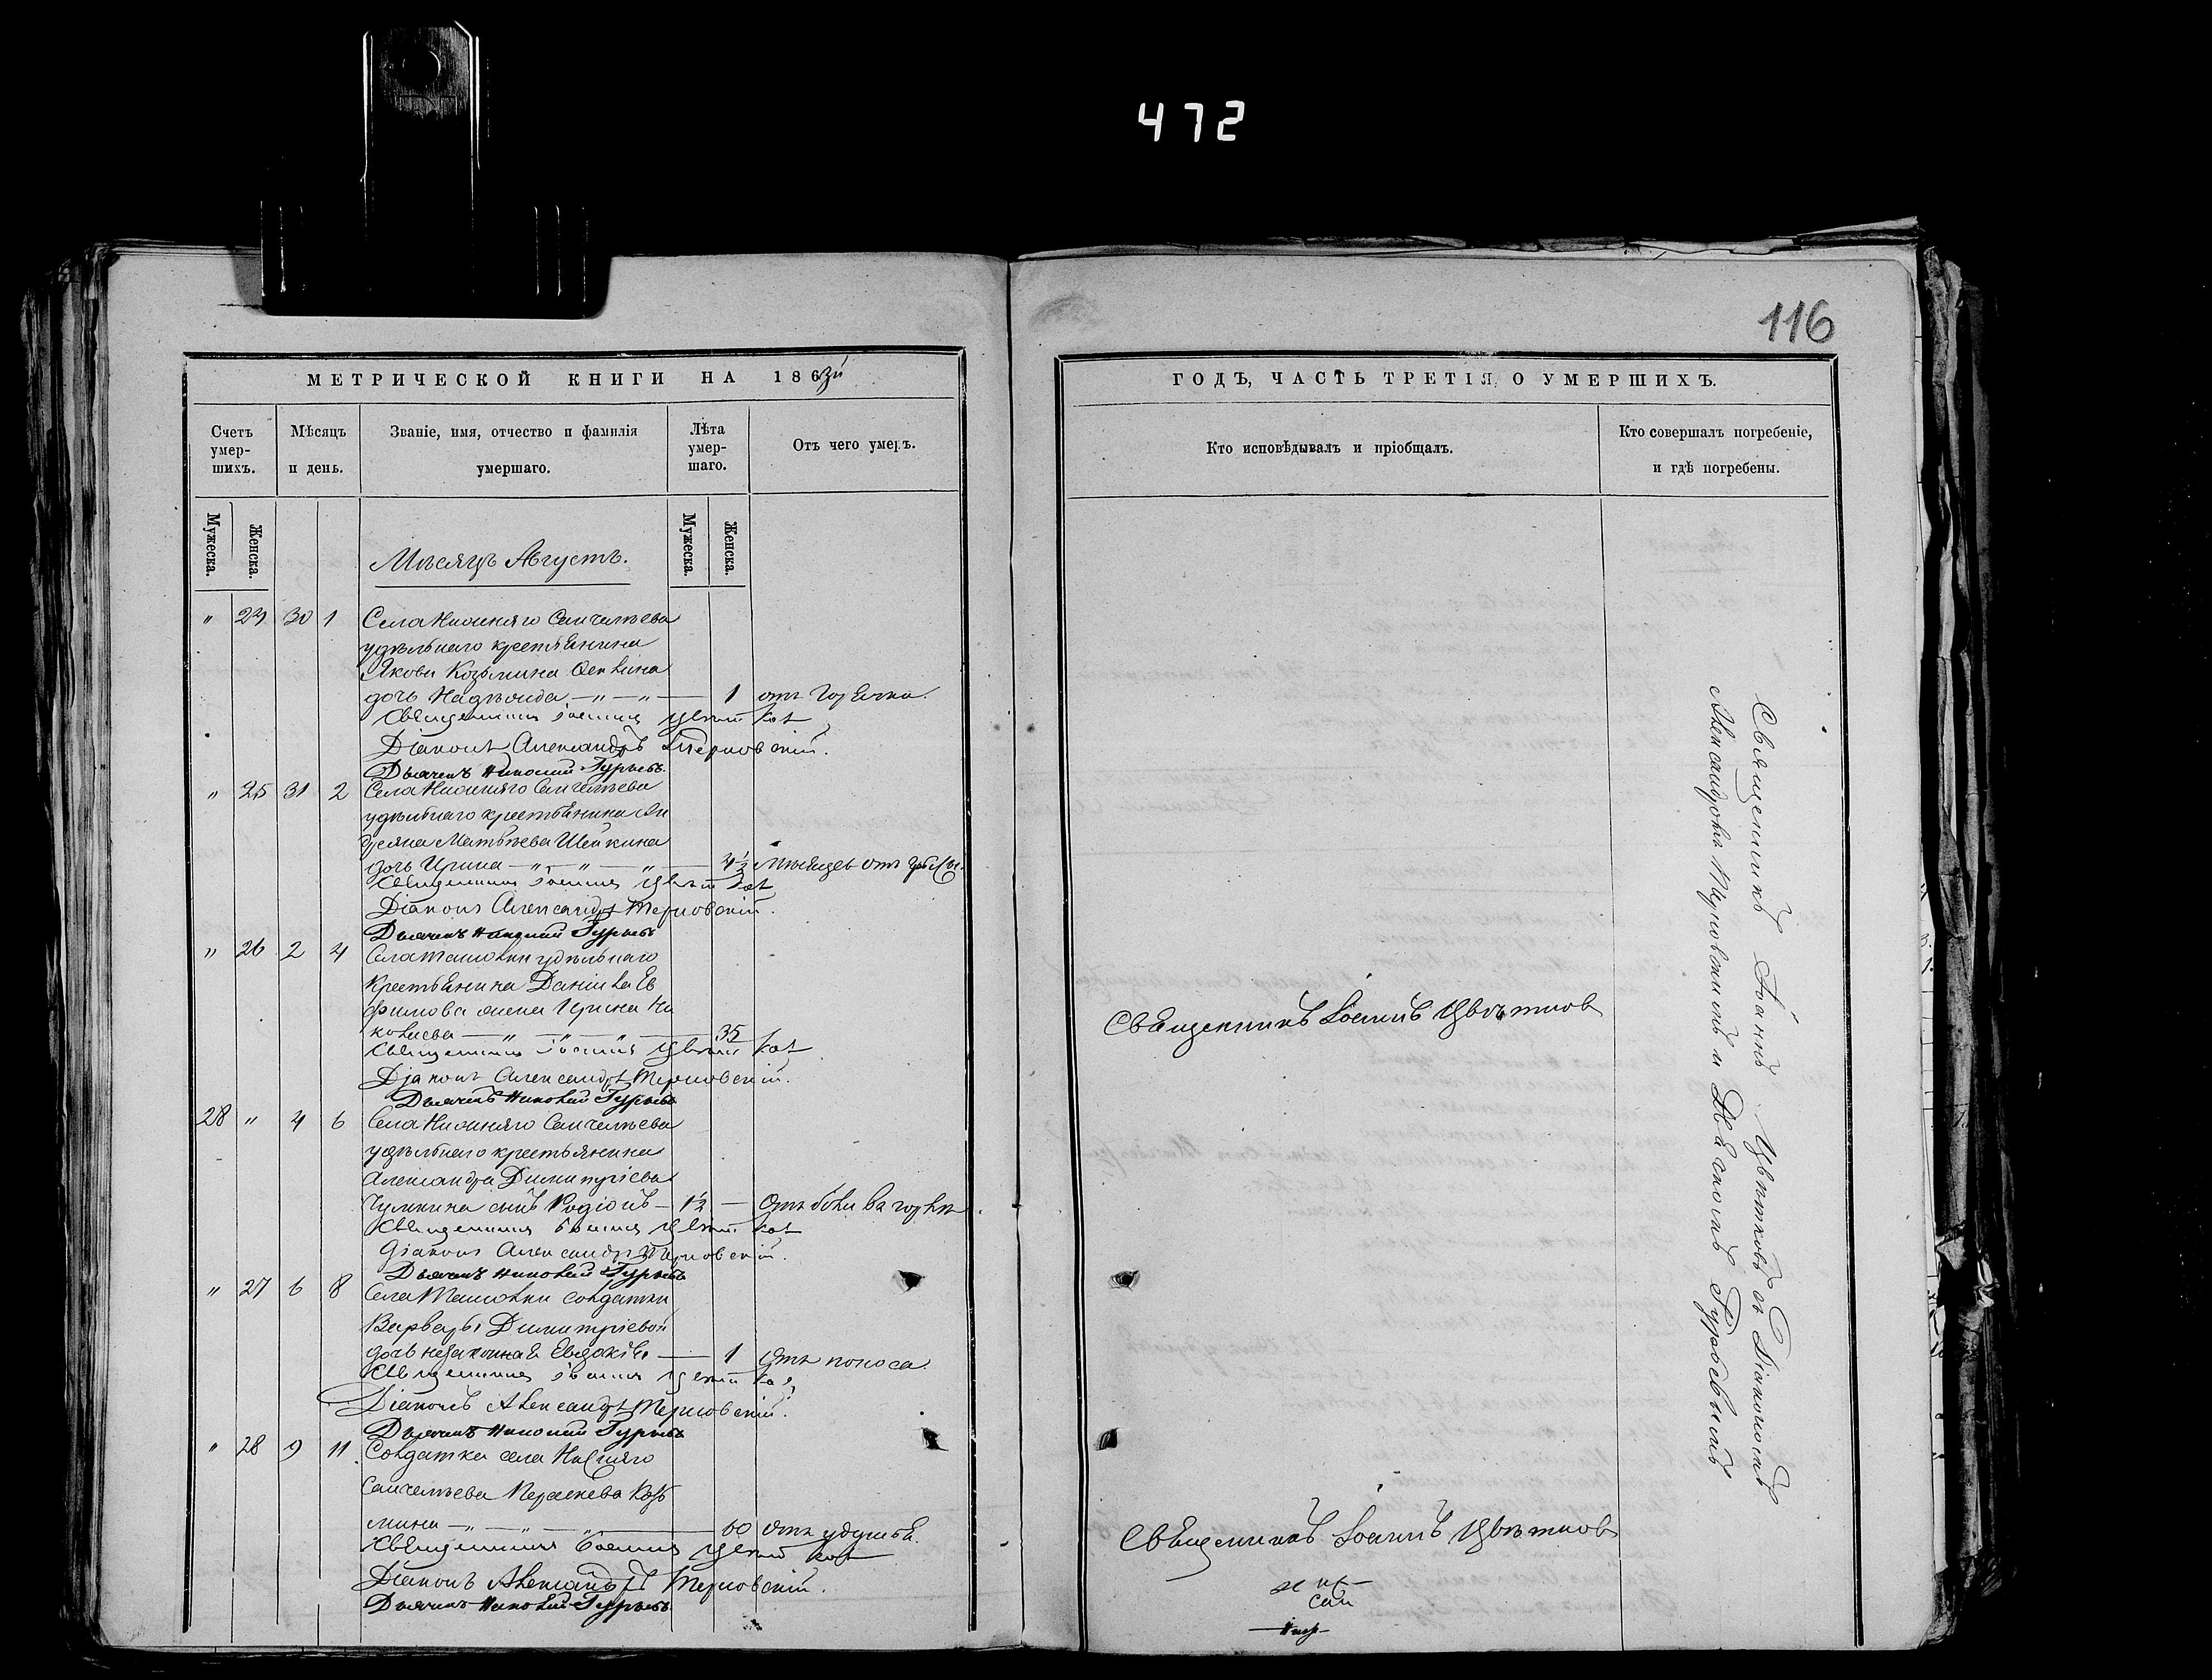 472
116
МЕТРИЧЕСКОЙ КНИГИ НА 1863й
ГОДЪ, ЧАСТЬ ТРЕТІЯ, О УМЕРШИХЪ.
Счетъ умер-шихъ.
Мѣсяцъ и день.
Званіе, имя, отчество и фамилія умершаго.
Лѣта умер-шаго.
Отъ чего умеръ.
Кто исповѣдывалъ и пріобщалъ.
Кто совершалъ погребеніе, и гдѣ погребены.
Мужеска.
Женска.
Мужеска.
Женска.
Мѣсяцъ Августъ.
" 24 30 1 Села Нижняго Санчелѣева
удѣльнаго крестьянина
Якова Козьмина
дочь Надежда — " — " — 1 отъ горячки.
Священникъ Іоаннъ Цвѣтков
Діаконъ Александръ Терновскій.
Дьячекъ Николай Гурьевъ.
" 25 31 2 Села Нижняго Санчелѣева
удѣльнаго крестьянина Ан
дреяна Матвѣева Шейкина
дочь Ирина — " — " — " — 4½ мѣсяцев отъ
Священникъ Іоаннъ Цвѣтков
Діаконъ Александръ Терновскій.
Дьячекъ Николай Гурьевъ
" 26 2 4 Села Ташолки удѣльнаго
крестьянина Данила Еф
фимова жена Ирина Ни
колаева — " — " — " — 35
Священникъ Іоаннъ Цвѣтков
Діаконъ Александръ Терновскій.
Дьячекъ Николай Гурьевъ
Священникъ Іоаннъ Цвѣтков
28 " 4 6 Села Нижняго Санчелѣева
удѣльнаго крестьянина
Александра Димитріева
Чумкина сынъ Родіонъ — 1½ — отъ боли ва горлѣ.
Священникъ Іоаннъ Цвѣтков
Діаконъ Александръ Терновскій.
Дьячекъ Николай Гурьевъ
" 27 6 8 Села Ташолки солдатки
Варвары Димитріевой
дочь незаконная Евдокія — 1 отъ поноса
Священникъ Іоаннъ Цвѣтков
Діаконъ Александръ Терновскій.
Дьячекъ Николай Гурьевъ
" 28 9 11 Солдатка села Нижняго
Санчелѣева Параскева Козь
мина — " — " — " — 60 отъ удушья.
Священникъ Іоаннъ Цвѣтков
Діаконъ Александръ Терновскій.
Дьячекъ Николай Гурьевъ.
Священникъ Іоаннъ Цвѣтков
Священникъ Іоаннъ Цвѣтковъ съ Діакономъ
Александромъ Терновскимъ и Дьячкомъ Гурьевымъ